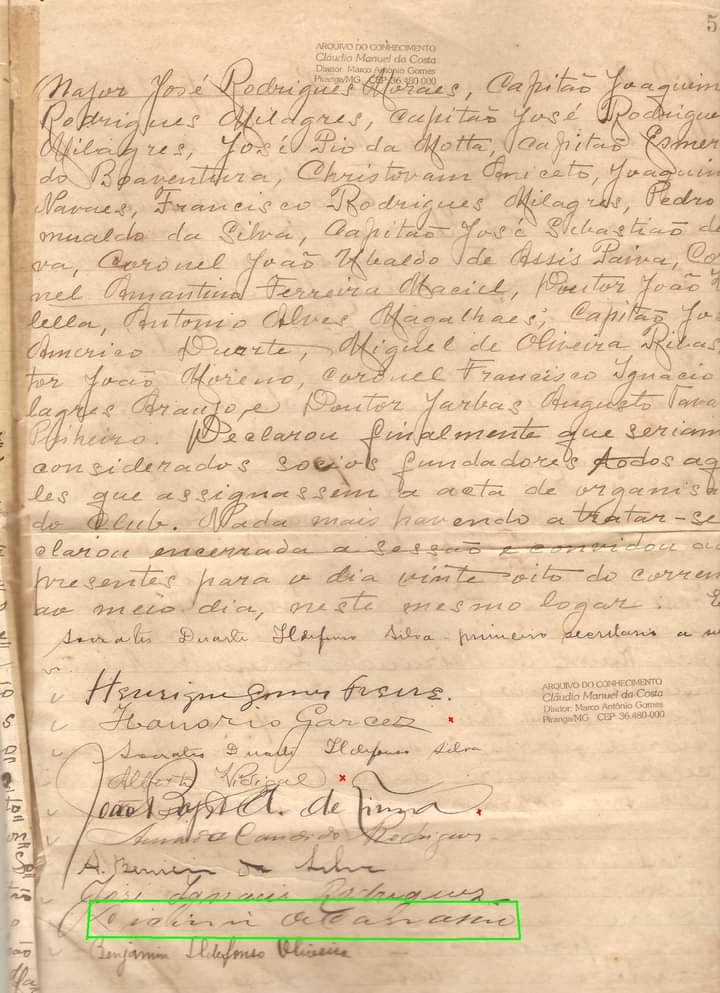 5
ARQUIVO DO CONHECIMENTO
Cláudio Manuel da Costa
Diretor: Marco Antônio Gomes
Piranga/MG CEP 36.480-000
Major José Rodrigues Moraes, Capitão Joaquim
Rodrigues Milagres, Capitão José Rodrigue
Milagres, José Pio da Motta, Capitão Esmer
do Boaventura, Christovam Aniceto, Joaquim
Navaes, Francisco Rodrigues Milagres, Pedro
mualdo da Silva, Capitão José Sebastião d
va, Coronel João Ubaldo de Assis Paiva, Co
nel Amantino Ferreira Maciel, Doutor João
lella, Antonio Alves Magalhaes, Capitão Jo
Americo Duarte, Miguel de Oliveira Ribas
tor João Moreno, Coronel Francisco Ignacio
lagres Araujo, e Doutor Jarbas Augusto Tava
Pinheiro. Declarou finalmente que seriam
considerados socios fundadores todos aq
les que assignassem a acta de organisa
do Club. Nada mais havendo a tratar-se
clarou encerrada a sessão e convidou ao
presentes para o dia vinte oito do corren
ao meio dia, neste mesmo logar. E
Socrates Duarte Ildefonso Silva primeiro secretario a
Henrique Gomes Freire.
Honorio Garcez
Socrates Duarte Ildefonso Silva
Alberto Vidigal
João Bapt. A. de Souza
Amado Candido Rodrigues
A. Ferreira da Silva
José Ignacio Rodrigues
ARQUIVO DO CONHECIMENTO
Cláudio Manuel da Costa
Diretor: Marco Antônio Gomes
Piranga/MG CEP 36.480-000
Benjamin Ildefonso Oliveira